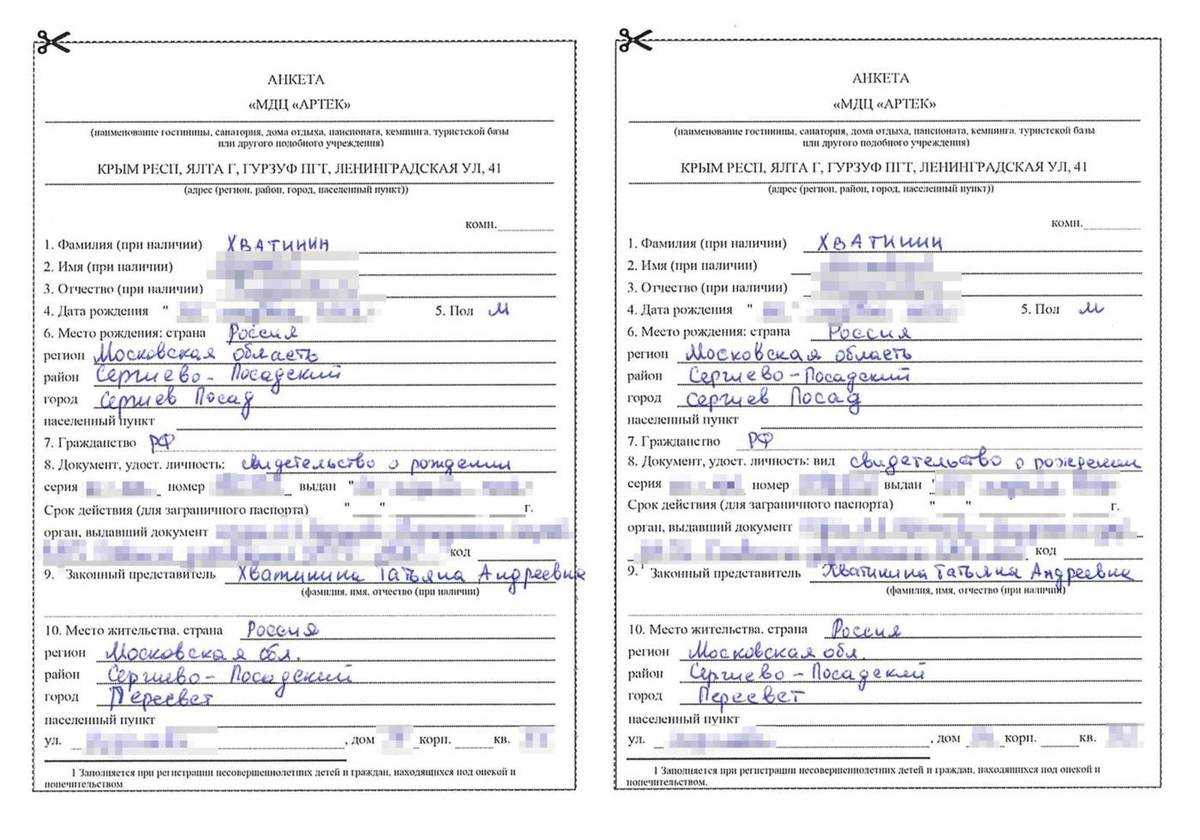 АНКЕТА
«МДЦ «АРТЕК»
(наименование гостиницы, санатория, дома отдыха, пансионата, кемпинга, туристской базы
или другого подобного учреждения)
КРЫМ РЕСП, ЯЛТА Г, ГУРЗУФ ПГТ, ЛЕНИНГРАДСКАЯ УЛ, 41
(адрес (регион, район, город, населенный пункт))
комн.
1. Фамилия (при наличии) ХВАТИНИН
2. Имя (при наличии)
3. Отчество (при наличии)
4. Дата рождения " 5. Пол М
6. Место рождения: страна Россия
регион Московская область
район Сергиево-Посадский
город Сергиев Посад
населенный пункт
7. Гражданство РФ
8. Документ, удост. личность: свидетельство о рождении
серия номер выдан "
Срок действия (для заграничного паспорта) " " г.
орган, выдавший документ
код
9. Законный представитель Хватинина Татьяна Андреевна
(фамилия, имя, отчество (при наличии)
10. Место жительства. страна Россия
регион Московская обл.
район Сергиево-Посадский
город Пересвет
населенный пункт
ул. , дом корп. кв.
1 Заполняется при регистрации несовершеннолетних детей и граждан, находящихся под опекой и
попечительством
АНКЕТА
«МДЦ «АРТЕК»
(наименование гостиницы, санатория, дома отдыха, пансионата, кемпинга, туристской базы
или другого подобного учреждения)
КРЫМ РЕСП, ЯЛТА Г, ГУРЗУФ ПГТ, ЛЕНИНГРАДСКАЯ УЛ, 41
(адрес (регион, район, город, населенный пункт))
комн.
1. Фамилия (при наличии) ХВАТИНИН
2. Имя (при наличии)
3. Отчество (при наличии)
4. Дата рождения " 5. Пол М
6. Место рождения: страна Россия
регион Московская область
район Сергиево-Посадский
город Сергиев Посад
населенный пункт
7. Гражданство РФ
8. Документ, удост. личность: вид свидетельство о рождении
серия номер выдан "
Срок действия (для заграничного паспорта) " " г.
орган, выдавший документ
код
9. Законный представитель Хватинина Татьяна Андреевна
(фамилия, имя, отчество (при наличии)
10. Место жительства. страна Россия
регион Московская обл.
район Сергиево-Посадский
город Пересвет
населенный пункт
ул. , дом корп. кв.
1 Заполняется при регистрации несовершеннолетних детей и граждан, находящихся под опекой и
попечительством.